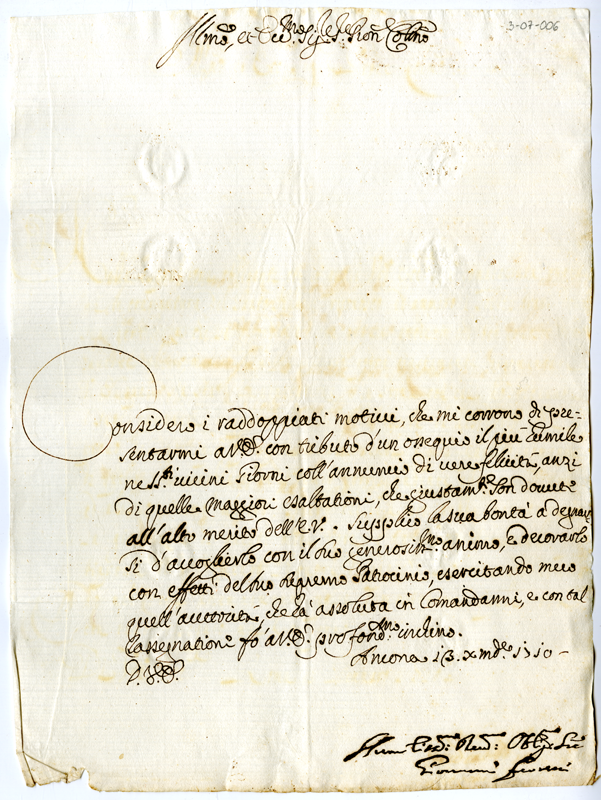 3-07-006
Illmo, et Ecc.mo Sig.re Sig.re Pron Colmo
Considero i raddoppiati motivi, che mi corrono di pre=
sentarmi a V.E. con tributo d'un ossequio il più humile
ne SS.ti vicini Giorni coll'annuncio di vere felicità, anzi
di quelle Maggiori esaltationi, che giustam.te son dovute
all'alto merito dell'E.V. Supplico la sua bontà a degnar
si d'accoglierlo con il suo generosiss.mo animo, e decorarlo
con effetti del suo supremo Patrocinio, esercitando meco
quell'auttorità, che hà assoluta in Comandarmi, e con tal
rassegnatione fò a V.E. profond.mo inchino.
Ancona 13 xmbre 1710
D. V.E.